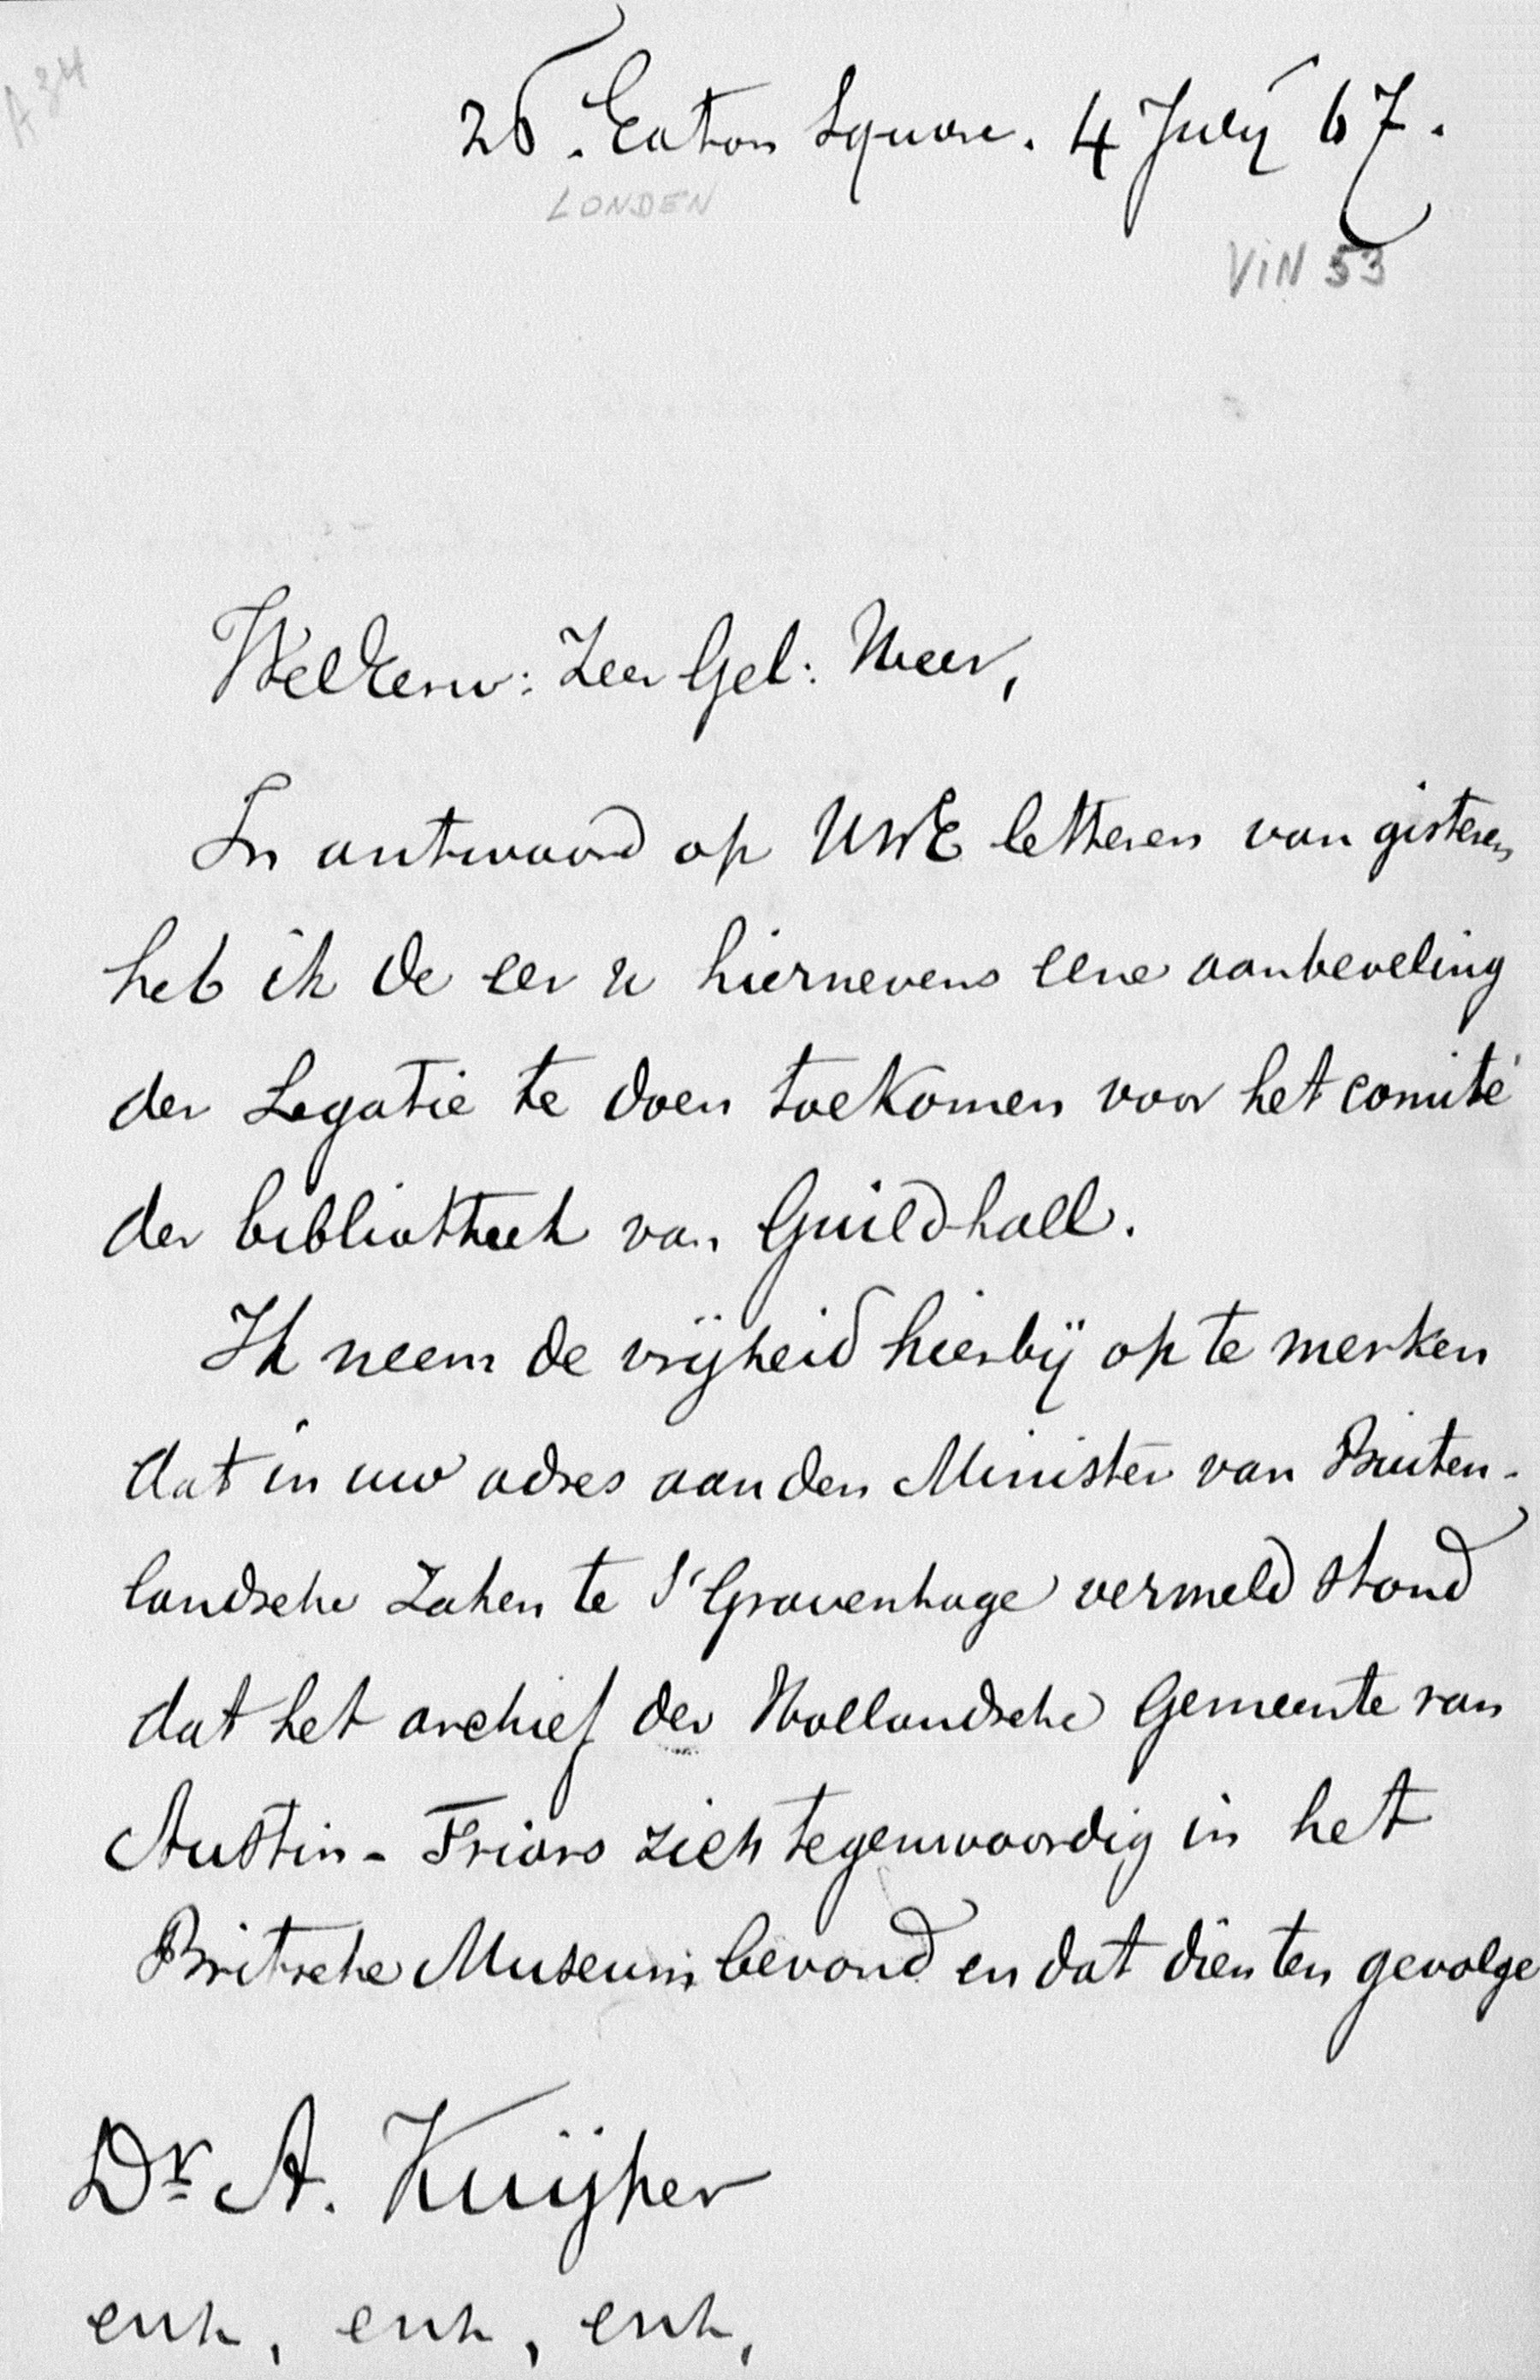 A 34
26. Eaton Square. 4 July 67.
LONDEN
VIN 53
WelEerw: Zeer Gel: Heer,
In antwoord op UWE letteren van gisteren
heb ik de eer u hiernevens eene aanbeveling
der Legatie te doen toekomen voor het comité
der bibliotheek van Guildhall.
Ik neem de vrijheid hierbij op te merken
dat in uw adres aan den Minister van Buiten-
landsche Zaken te s'Gravenhage vermeld stond
dat het archief der Hollandsche Gemeente van
Austin-Friars zich tegenwoordig in het
Britsche Museum bevond en dat dien ten gevolge
Dr A. Kuijper
enz, enz, enz,